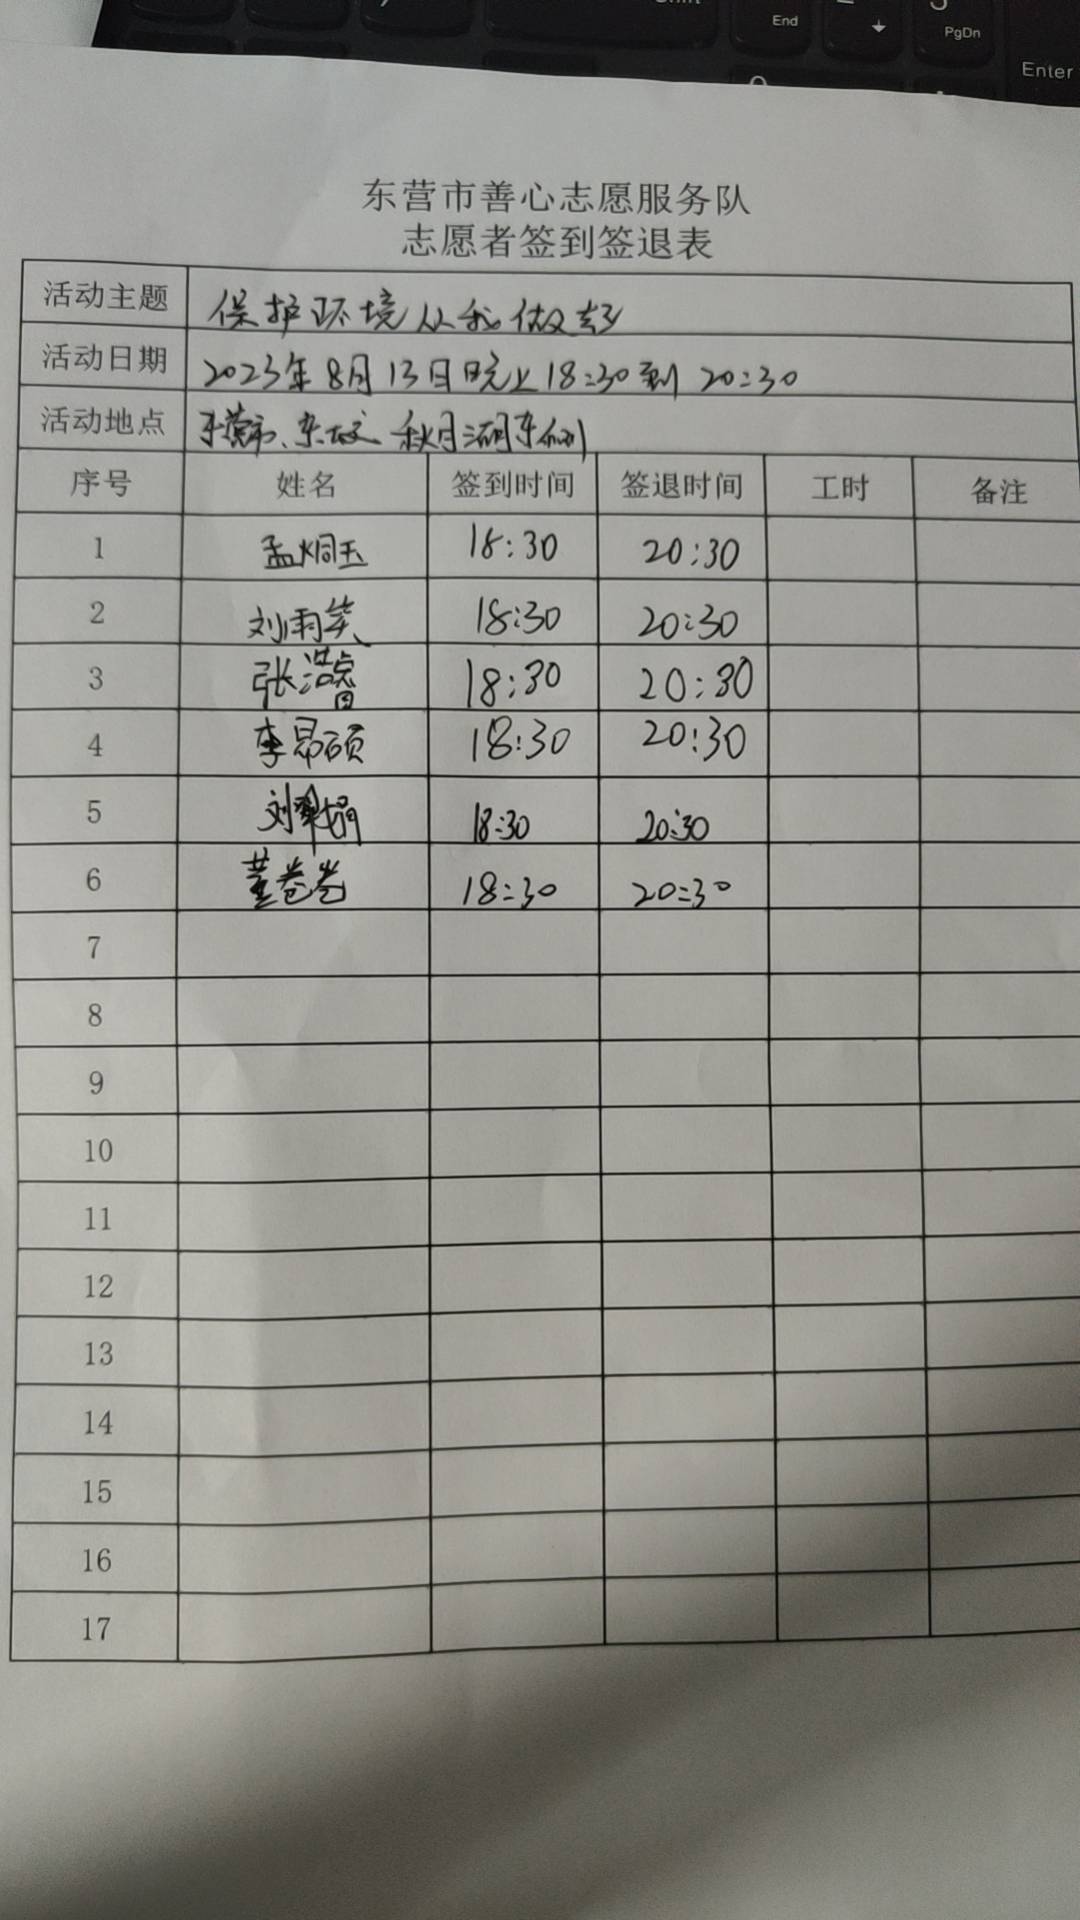 End
PgDn
Enter
东营市善心志愿服务队
志愿者签到签退表
活动主题 保护环境从我做起
活动日期 2023年8月13日晚上18:30到 20:30
活动地点 东营市、东城 秋月湖东侧
序号 姓名 签到时间 签退时间 工时 备注
1 孟炯玉 18:30 20:30
2 刘雨笑 18:30 20:30
3 张浩睿 18:30 20:30
4 李昂硕 18:30 20:30
5 刘 娟 18:30 20:30
6 董卷卷 18:30 20:30
7
8
9
10
11
12
13
14
15
16
17